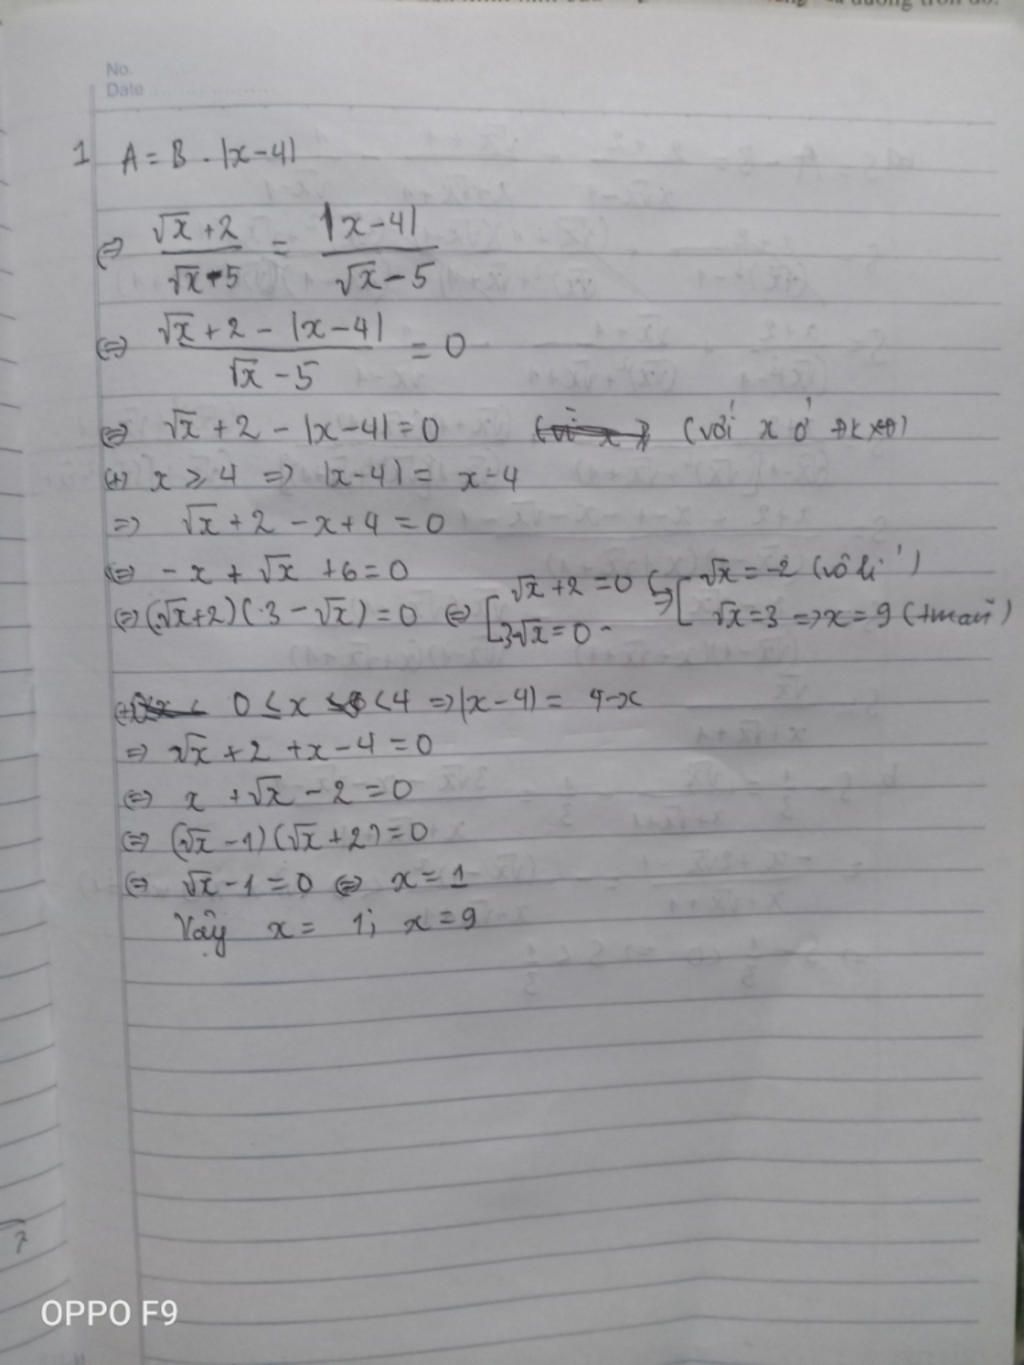 No.
Date
1 A = B . |x-4|
⇔ (√x + 2)/(√x - 5) = |x-4|/(√x - 5)
⇔ (√x + 2 - |x-4|)/(√x - 5) = 0
⇔ √x + 2 - |x-4| = 0 (với x ở ĐKXĐ)
(+) x ≥ 4 => |x-4| = x-4
=> √x + 2 - x + 4 = 0
⇔ - x + √x + 6 = 0
⇔ (√x+2)(3 - √x) = 0 ⇔ [ √x + 2 = 0 ; 3-√x = 0 ⇔ [ √x = -2 (vô lí) ; √x = 3 => x = 9 (tmãn)
(+) 0 ≤ x < 4 => |x-4| = 4-x
=> √x + 2 + x - 4 = 0
⇔ x + √x - 2 = 0
⇔ (√x - 1)(√x + 2) = 0
⇔ √x - 1 = 0 ⇔ x = 1
Vậy x = 1; x = 9
OPPO F9